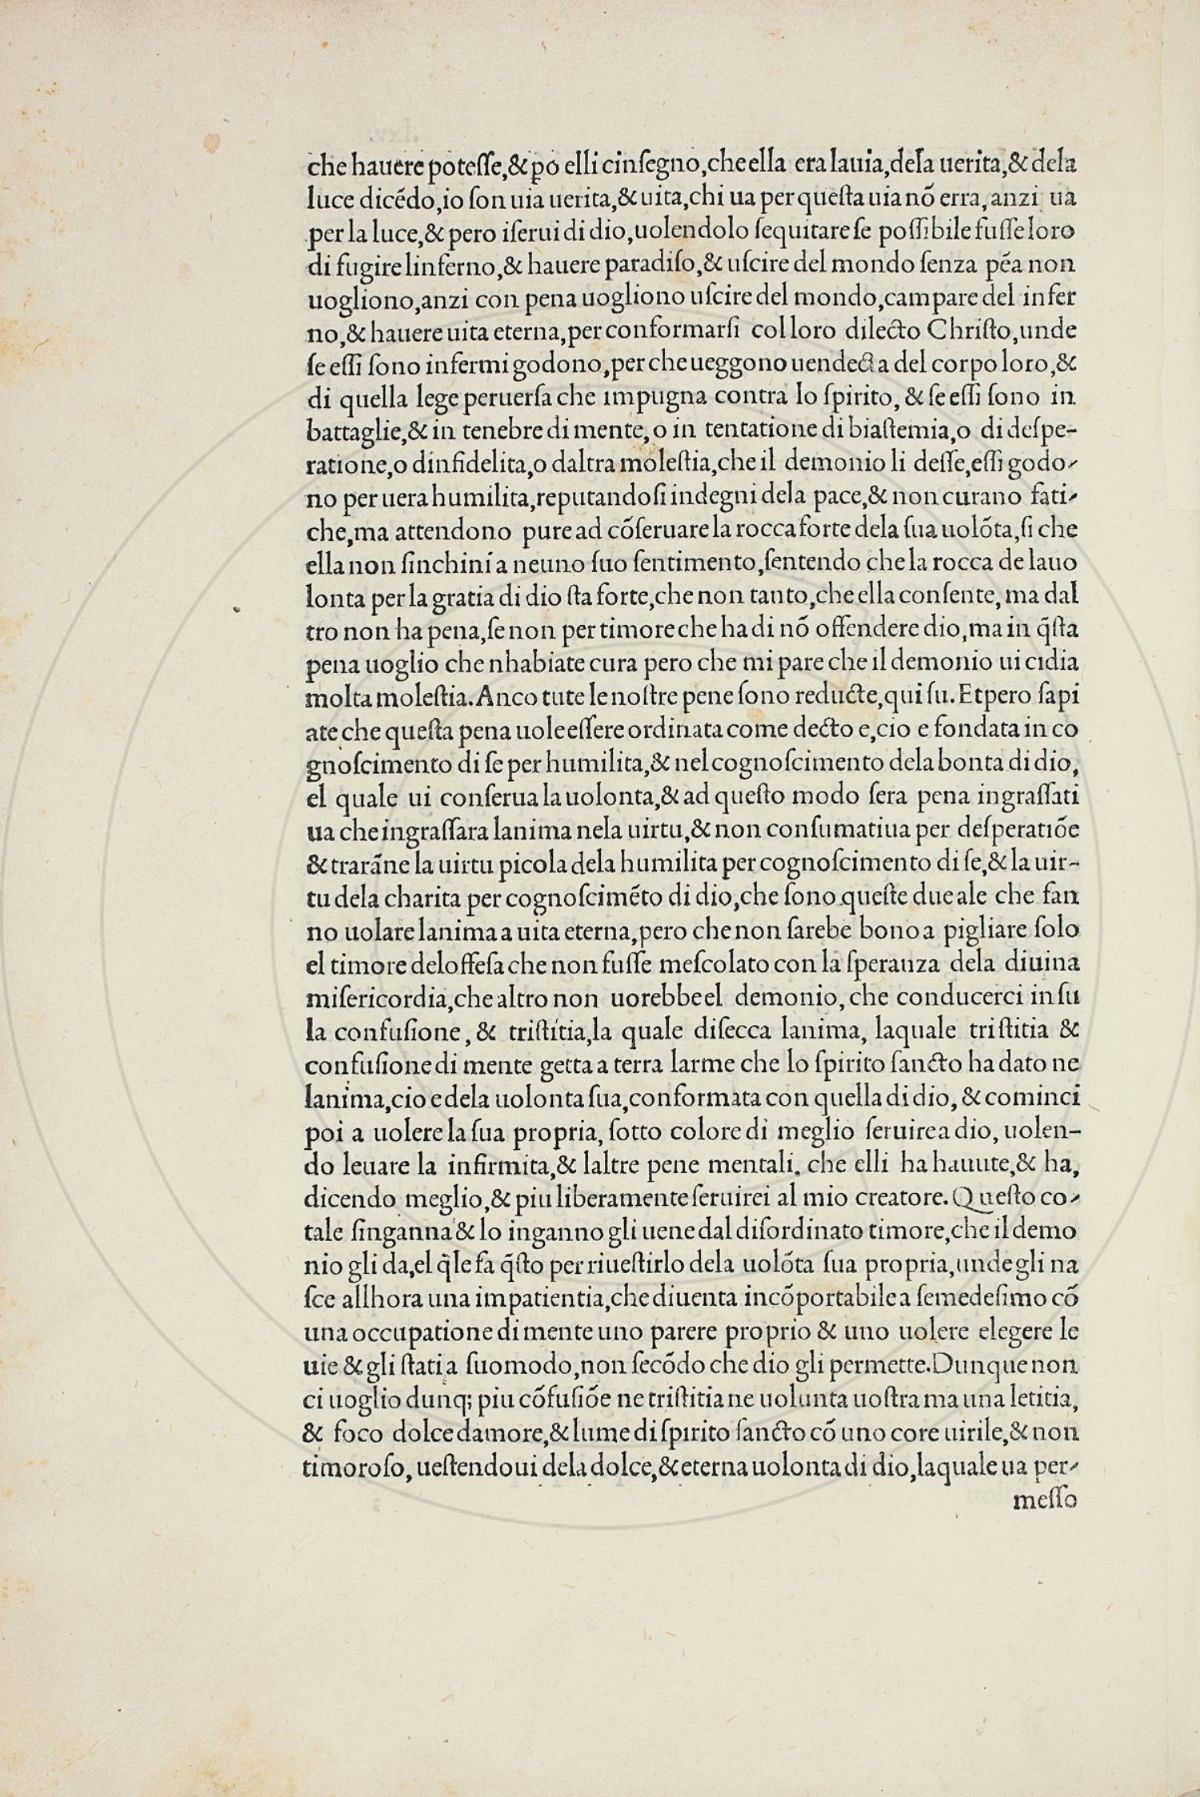 che hauere poteſſe,&ꝑo elli cinſegno,che ella era lauia,dela uerita,& dela
luce dicēdo,io ſon uia uerita,& uita,chi ua per queſta uia nō erra,anzi ua
per la luce,& pero iſerui di dio,uolendolo ſequitare ſe poſſibile fuſſe loro
di fugire linferno,& hauere paradiſo,& uſcire del mondo ſenza pēa non
uogliono,anzi con pena uogliono uſcire del mondo,campare del infer
no,& hauere uita eterna,per conformarſi col loro dilecto Chriſto,unde
ſe eſſi ſono infermi godono,per che ueggono uendecta del corpo loro,&
di quella lege peruerſa che impugna contra lo ſpirito, & ſe eſſi ſono in
battaglie,& in tenebre di mente,o in tentatione di biaſtemia,o di deſpe-
ratione,o dinfidelita,o daltra moleſtia,che il demonio li deſſe,eſſi godo-
no per uera humilita,reputandoſi indegni dela pace,& non curano fati-
che,ma attendono pure ad cōſeruare la rocca forte dela ſua uolōta,ſi che
ella non ſinchini a neuno ſuo ſentimento,ſentendo che la rocca de la uo
lonta per la gratia di dio ſta forte,che non tanto,che ella conſente, ma dal
tro non ha pena,ſe non per timore che ha di nō offendere dio,ma in q̄ſta
pena uoglio che nhabiate cura pero che mi pare che il demonio ui ci dia
molta moleſtia.Anco tute le noſtre pene ſono reducte,qui ſu.Et pero ſapi
ate che queſta pena uole eſſere ordinata come decto e,cio e fondata in co
gnoſcimento di ſe per humilita,& nel cognoſcimento dela bonta di dio,
el quale ui conſerua la uolonta,& ad queſto modo ſera pena ingraſſati
ua che ingraſſara lanima nela uirtu,& non conſumatiua per deſperatiōe
& trarāne la uirtu picola dela humilita per cognoſcimento di ſe,& la uir-
tu dela charita per cognoſcimēto di dio,che ſono queſte due ale che fan
no uolare lanima a uita eterna,pero che non ſarebe bono a pigliare ſolo
el timore deloffeſa che non fuſſe meſcolato con la ſperanza dela diuina
miſericordia,che altro non uorebbe el demonio, che conducerci in ſu
la confuſione, & triſtitia,la quale diſecca lanima, laquale triſtitia &
confuſione di mente getta a terra larme che lo ſpirito ſancto ha dato ne
lanima,cio e dela uolonta ſua,conformata con quella di dio, & cominci
poi a uolere la ſua propria, ſotto colore di meglio ſeruire a dio, uolen-
do leuare la infirmita,& laltre pene mentali. che elli ha hauute,& ha,
dicendo meglio,& piu liberamente ſeruirei al mio creatore.Queſto co-
tale ſinganna & lo inganno gli uene dal diſordinato timore,che il demo
nio gli da,el q̄le fa q̄ſto per riueſtirlo dela uolōta ſua propria,unde gli na
ſce allhora una impatientia,che diuenta incōportabile a ſemedeſimo cō
una occupatione di mente uno parere proprio & uno uolere elegere le
uie & gli ſtati a ſuo modo,non ſecōdo che dio gli permette.Dunque non
ci uoglio dunq; piu cōfuſiōe ne triſtitia ne uolunta uoſtra ma una letitia,
& foco dolce damore,& lume di ſpirito ſancto cō uno core uirile,& non
timoroſo, ueſtendoui dela dolce,& eterna uolonta di dio,laquale ua per-
meſſo